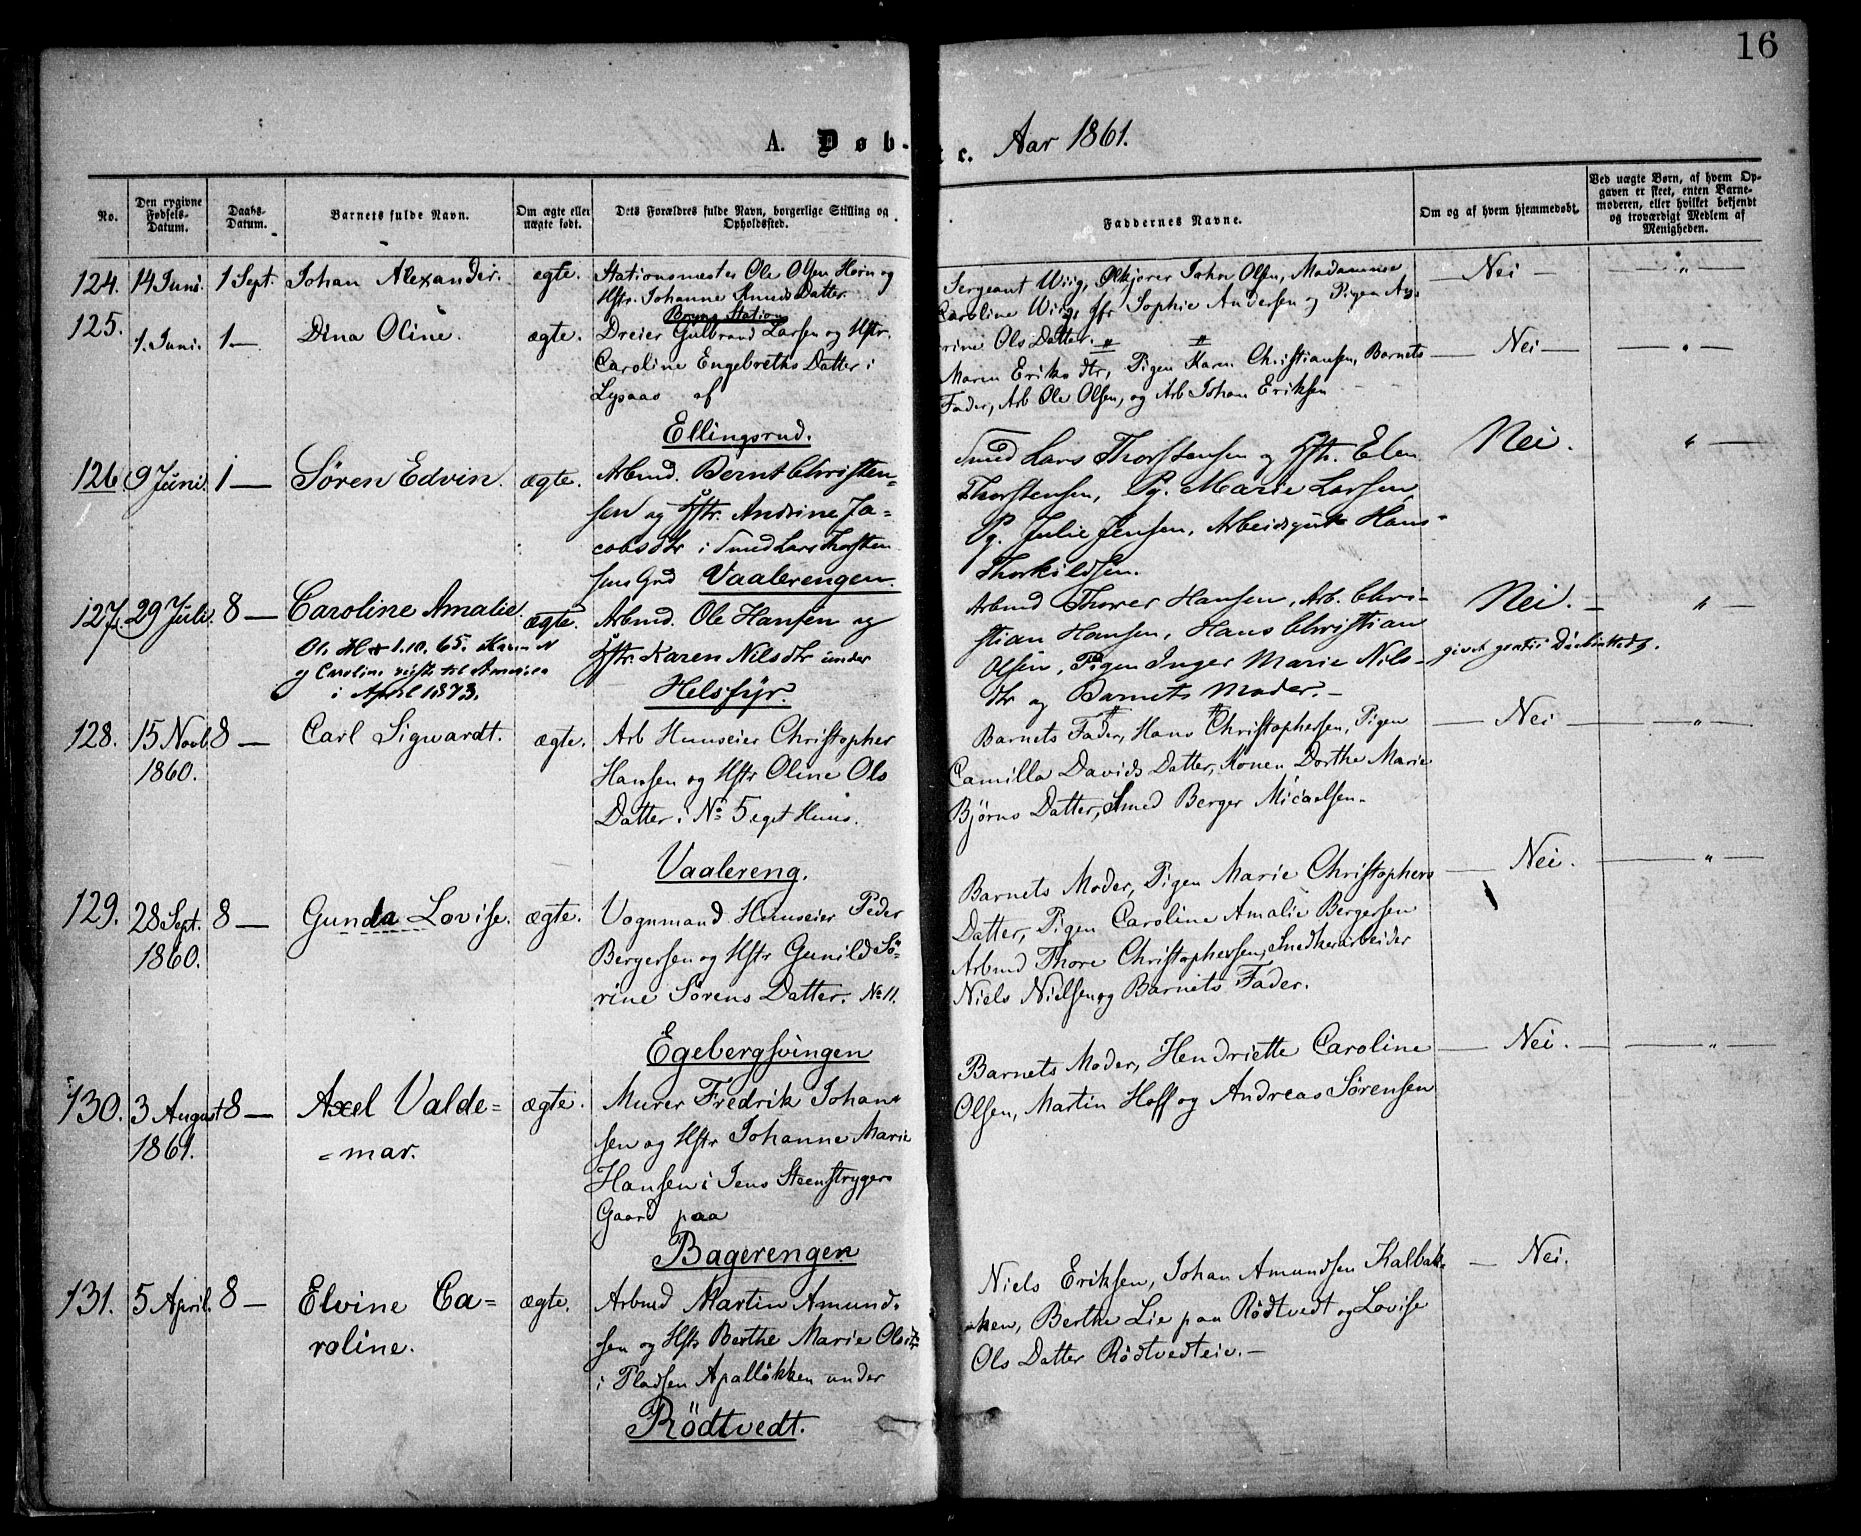 16
A. Døb- t c. Aar 1861.
No.
Den opgivne Fødsels-Datum.
Daabs-Datum.
Barnets fulde Navn.
Om ægte eller uægte født.
Dets Forældres fulde Navn, borgerlige Stilling og Opholdssted.
Faddernes Navne.
Om og af hvem hjemmedøbt.
Ved uægte Børn, af hvem Opgaven er skeet, enten Barnemoderen, eller hvilket bekjendt og troværdigt Medlem af Menigheden.
124. 14 Juni. 1 Sept. Johan Alexander. ægte.
Stationsmester Ole Olsen Horn og
Hstr. Johanne Knuds Datter.
Bryns Station
Sergeant Wiig, Johan Olsen, Madamme
Caroline Wiig, Jfr Sophie Andersen og Pigen An-
rine Ols Datter.
Nei
125. 1. Juni. 1 — Dina Oline. ægte.
Dreier Gulbrand Larsen og Hstr.
Caroline Engebreths Datter i
Lysaas af
Ellingsrud.
Maren Eriks dtr, Pigen Karen Christiansen, Barnets
Fader, Arb Ole Olsen, og Arb Johan Eriksen
Nei
126. 9 Juni. 1 — Søren Edvin. ægte.
Arbmd. Bernt Christen=
sen og Hstr. Andrine Ja=
cobsdtr i Smed Lars Thorsten
sens Grd Vaalerengen.
Smed Lars Thorstensen og Hstr. Elen
Thorstensen, Pg. Marie Larsen,
Pg. Julie Jensen, Arbeidsgut Hans
Thorkildsen.
Nei.
127. 29 Juli. 8 — Caroline Amalie. ægte.
1.10.65. Karen N
og Caroline reiste til Amerika
i April 1873.
Arbmd. Ole Hansen og
Hstr. Karen Nilsdtr under
Helsfyr.
Arbmd Thorer Hansen, Arb. Chri-
stian Hansen, Hans Christian
Olsen, Pigen Inger Marie Nils-
dtr og Barnets Moder. —
Nei. —
givet gratis Daabsattest.
128. 15 Novb. 1860. 8 — Carl Sigwardt. ægte.
Arb Huuseier Christopher
Hansen og Hstr Oline Ols
Datter i No 5 eget Huus.
Vaalereng.
Barnets Fader, Hans Christophersen, Pigen
Camilla Davids Datter, Konen Dorthe Marie
Bjørns Datter, Smed Berger Micaelsen.
Nei
129. 28 Sept. 1860. 8 — Gunda Lovise. ægte.
Vognmand Huuseier Peder
Bergersen og Hstr Gunild Sö-
rine Sörens Datter. No 11.
Egebergsvingen
Barnets Moder, Pigen Marie Christophers
Datter, Pigen Caroline Amalie Bergersen
Arbmd Thore Christophersen, Snedkerarbeider
Niels Nielsen og Barnets Fader.
Nei.
130. 3 August 1861. 8 — Axel Valde=
=mar. ægte.
Murer Fredrik Johan
sen og Hstr Johanne Marie
Hansen i Jens Steenstrygers
Gaard paa
Bagerengen
Barnets Moder, Hendriette Caroline
Olsen, Martin Hoff og Andreas Sørensen
Nei.
131. 5 April. 8 — Elvine Ca=
roline. ægte.
Arbmd Martin Amund.
sen og Hstr Berthe Marie Olsdtr
i Pladsen Apalløkken under
Rödtvedt.
Niels Eriksen, Johan Amundsen Kalbak-
ken, Berthe Lie paa Rödtvedt og Lovise
Ols Datter Rödtvedteie. —
Nei.